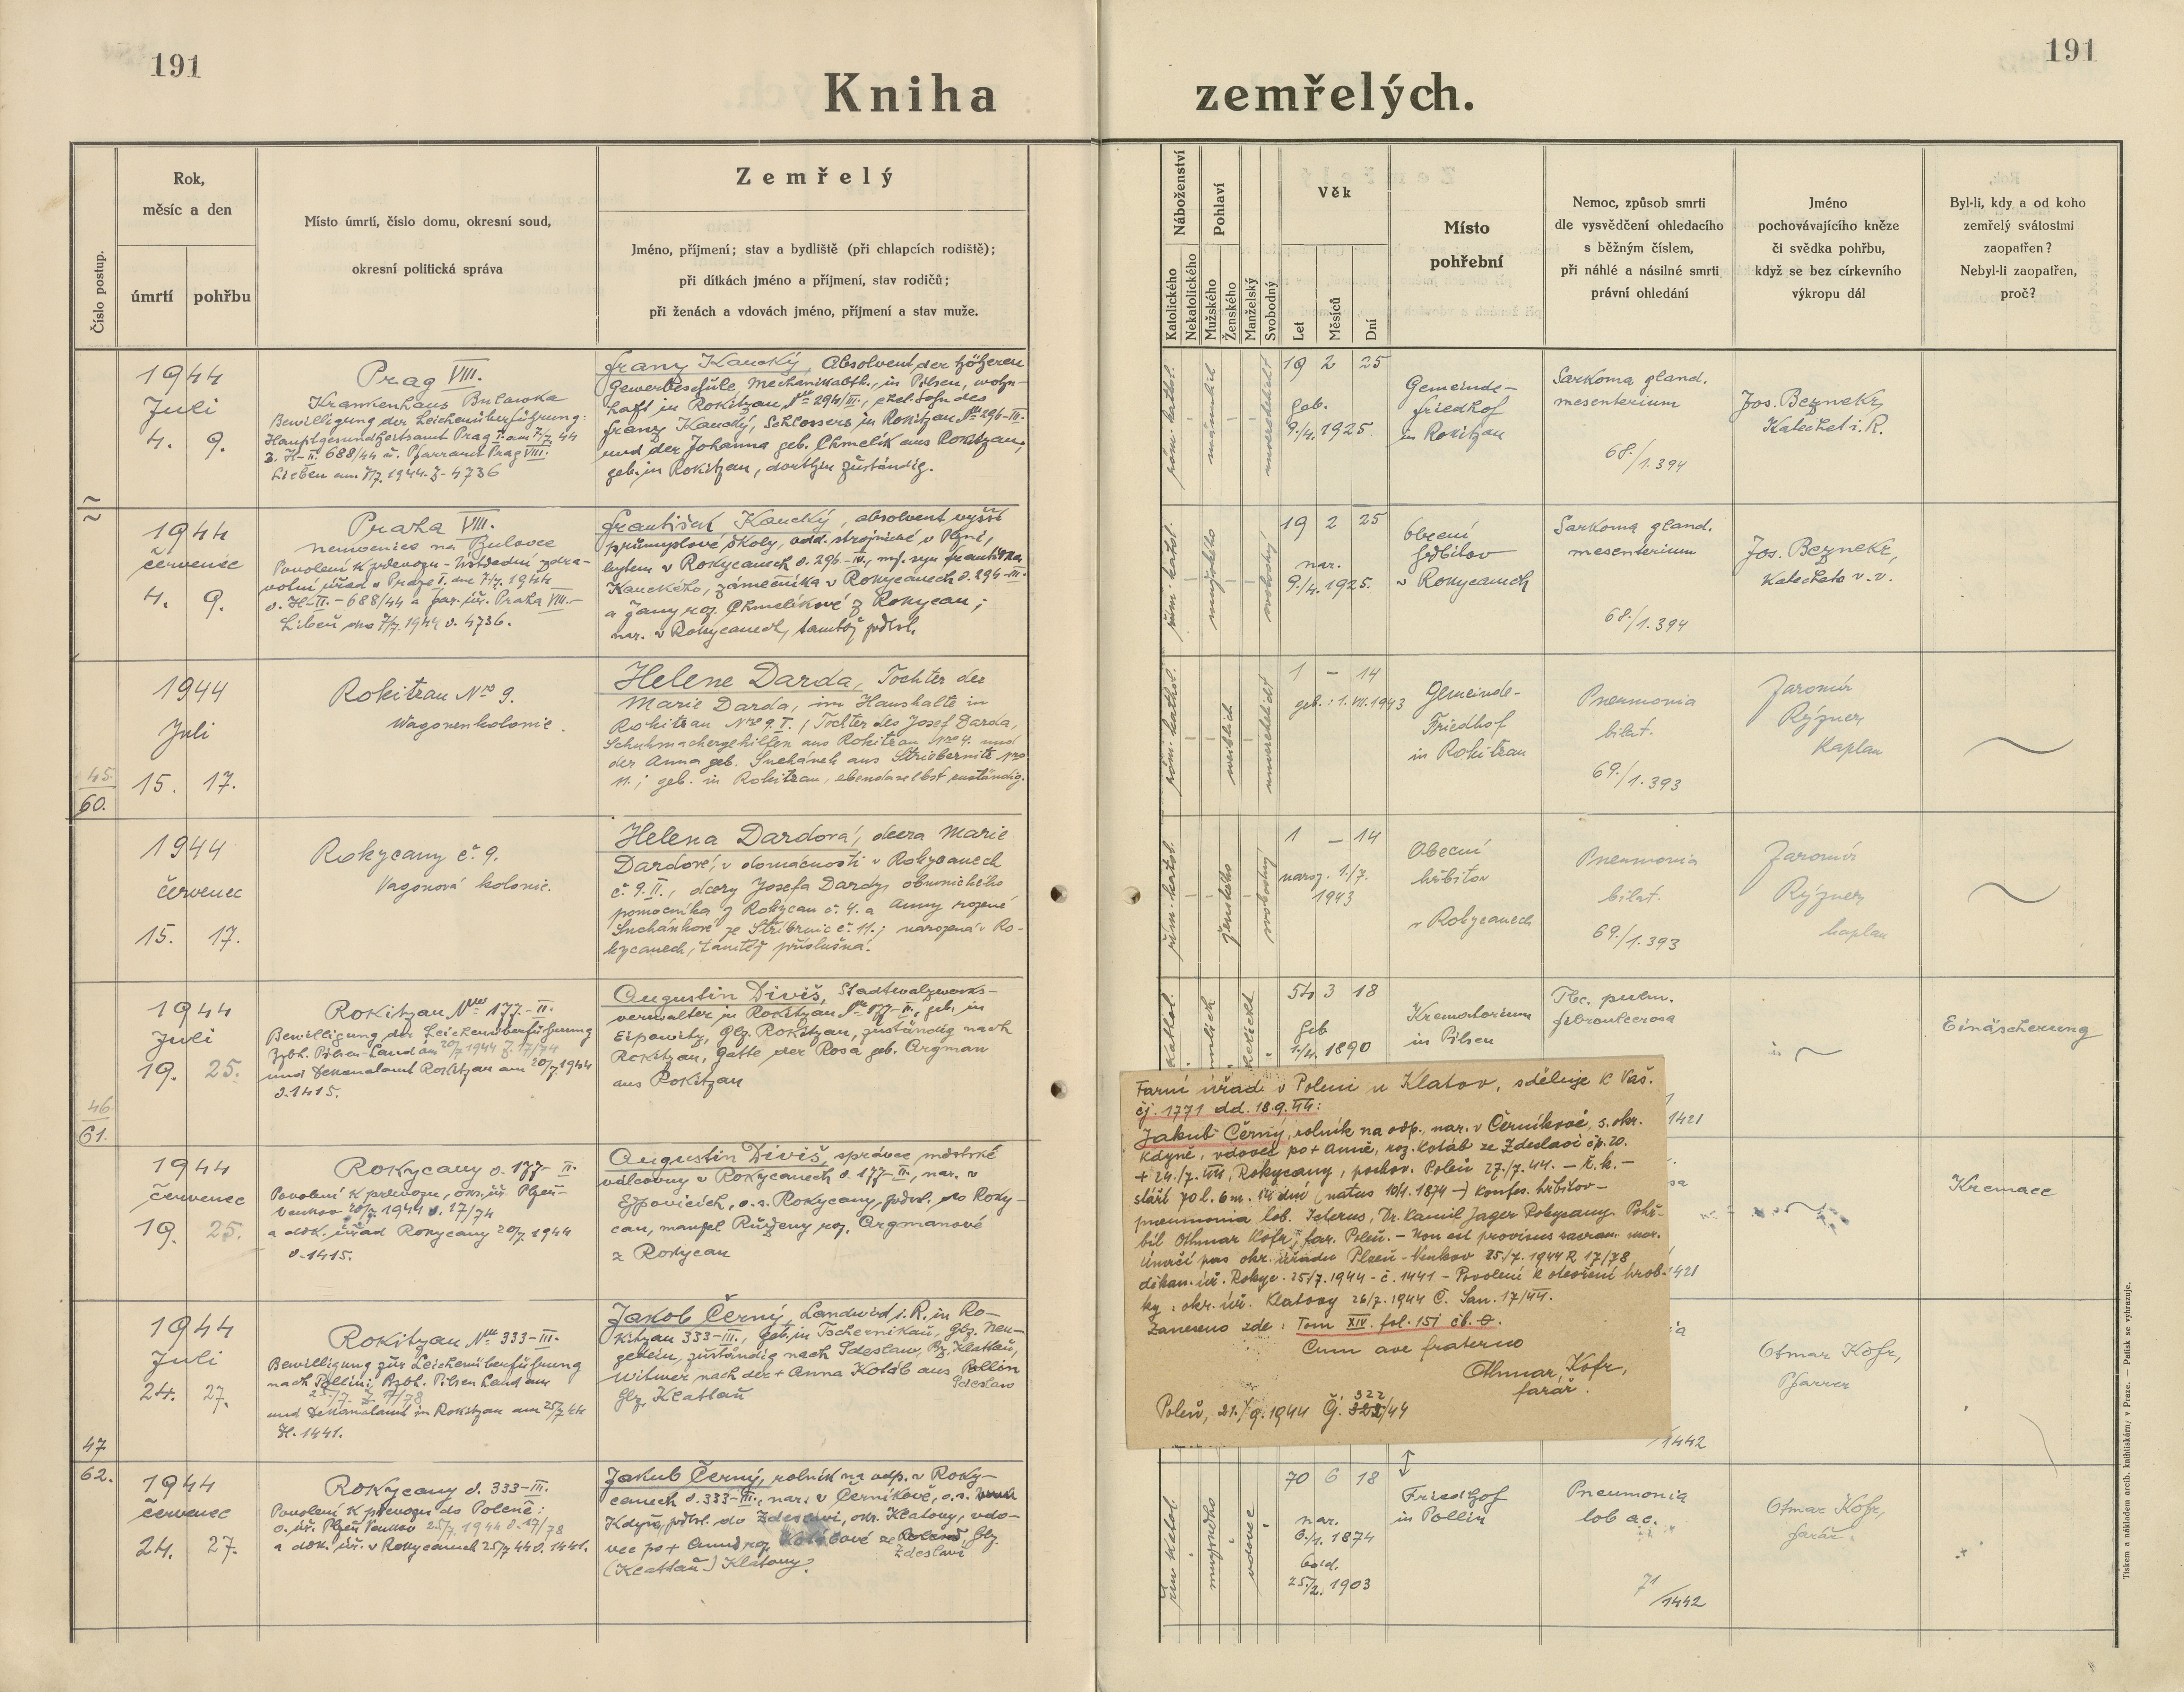 191
191
Kniha zemřelých.
Číslo postup.
Rok,
měsíc a den
úmrtí
pohřbu
Místo úmrtí, číslo domu, okresní soud,
okresní politická správa
Zemřelý
Jméno, příjmení; stav a bydliště (při chlapcích rodiště);
při dítkách jméno a příjmení, stav rodičů;
při ženách a vdovách jméno, příjmení a stav muže.
Náboženství
Katolického
Nekatolického
Pohlaví
Mužského
Ženského
Manželský
Svobodný
Věk
Let
Měsíců
Dní
Místo
pohřební
Nemoc, způsob smrti
dle vysvědčení ohledacího
s běžným číslem,
při náhlé a násilné smrti
právní ohledání
Jméno
pochovávajícího kněze
či svědka pohřbu,
když se bez církevního
výkropu dál
Byl-li, kdy a od koho
zemřelý svátostmi
zaopatřen?
Nebyl-li zaopatřen,
proč?
1944
Juli
4. 9.
Prag VIII.
Krankenhaus Bulowka
Bewilligung der Leichenüberführung:
Hauptgesundheitsamt Prag I. am 7/7. 44
Z. H-II. 688/44 u. Pfarramt Prag VIII.
Lieben am 7/7. 1944. Z- 4736
Franz Kaucký, Absolvent der höheren
Gewerbeschule, Mechanikabtlg., in Pilsen, wohn-
haft in Rokitzan, Nro 294/III., ehel. Sohn des
Franz Kaucký, Schlossers in Rokitzan Nro 296-III.
und der Johanna geb. Chmelík aus Rokitzan,
geb. in Rokitzan, dorthin zuständig.
röm. kathol.
männlich
unverehelicht
19 2 25
geb.
9./4. 1925
Gemeinde-
friedhof
in Rokitzan
Sarkoma gland.
mesenterium
68./1.394
Jos. Beznekr,
Katechet i. R.
1944
červenec
4. 9.
Praha VIII.
nemocnice na Bulovce
Povolení k převozu - Ústřední zdra-
votní úřad v Praze I. dne 7/7. 1944
č. H-II. - 688/44 a far. úř. Praha VIII.-
Libeň dne 7/7. 1944 č. 4736.
František Kaucký, absolvent vyšší
průmyslové školy, odd. strojnické v Plzni,
bytem v Rokycanech č. 296-III., mž. syn Františka
Kauckého, zámečníka v Rokycanech č. 294-III.
a Jany roz. Chmelíkové z Rokycan;
nar. v Rokycanech, tamtéž přísl.
řím. katol.
mužského
svobodný
19 2 25
nar.
9./4. 1925.
Obecní
hřbitov
v Rokycanech
Sarkoma gland.
mesenterium
68./1.394
Jos. Beznekr,
Katecheta v. v.
45.
60.
1944
Juli
15. 17.
Rokitzan Nro 9.
Wagonenkolonie.
Helene Darda, Tochter der
Marie Darda, im Haushalte in
Rokitzan Nro 9. I., Tochter des Josef Darda,
Schuhmachergehilfen aus Rokitzan Nro 4. und
der Anna geb. Suchánek aus Střiebernitz Nro
11.; geb. in Rokitzan, ebendaselbst zuständig.
röm. kathol.
weiblich
unverehelicht
1 - 14
geb.: 1. VII. 1943
Gemeinde-
Friedhof
in Rokitzan
Pneumonia
bilat.
69./1.393
Jaromír
Rýzner
Kaplan
1944
červenec
15. 17.
Rokycany č. 9.
Vagonová kolonie.
Helena Dardová, dcera Marie
Dardové, v domácnosti v Rokycanech
č. 9. II., dcery Josefa Dardy, obuvnického
pomocníka z Rokycan č. 4. a Anny rozené
Suchánkové ze Stříbrnic č. 11.; narozená v Ro-
kycanech, tamtéž příslušná.
řím. katol.
ženského
svobodný
1 - 14
naroz. 1./7.
1943
Obecní
hřbitov
v Rokycanech
Pneumonia
bilat.
69./1.393
Jaromír
Rýzner
kaplan
46
61.
1944
Juli
19. 25.
Rokitzan Nro 177-II.
Bewilligung der Leichenüberführung
Bzbh. Pilsen-Land am 20/7 1944 Z. 17/74
und Dekanalamt Rokitzan am 20/7 1944
č. 1415.
Augustin Diviš, Stadtwalzwerks-
verwalter in Rokitzan Nro 177-II., geb. in
Eipowitz, Glz. Rokitzan, zuständig nach
Rokitzan, Gatte der Rosa geb. Argman
aus Rokitzan
54 3 18
geb
1./4. 1890
Krematorium
in Pilsen
Tbc. pulm.
fibroulcerosa
Einäscherung
1421
1944
červenec
19. 25.
Rokycany č. 177- II.
Povolení k převozu, okr. úř. Plzeň-
venkov 20/7. 1944 č. 17/74
a děk. úřad Rokycany 20/7. 1944
č. 1415.
Augustin Diviš, správce městské
válcovny v Rokycanech č. 177-II., nar. v
Ejpovicích, o. s. Rokycany, přísl. do Roky-
can, manžel Růženy roz. Argmanové
z Rokycan
Kremace
1421
Farní úřad v Poleni u Klatov, sděluje k Vaš.
čj. 1771 dd. 18.9.44:
Jakub Černý, rolník na odp., nar. v Černíkově, s. okr.
Kdyně, vdovec po + Anně, roz. Kotáb ze Zdeslavi čp. 20.
+ 24./7. 44, Rokycany, pochov. Poleň 27./7. 44. - ř. k. -
stáří 70 l. 6 m. 14 dní (natus 10/1. 1874 -) Konfes. hřbitov -
pneumonia lob. Icterus, Dr. Kamil Jager Rokycany. Pohř-
bil Othmar Kofr, far. Poleň. - Non est provisus sacram. mor.
Úmrčí pas okr. úřadu Plzeň-Venkov 25./7. 1944 R 17/78
děkan. úř. Rokyc. 25/7. 1944 - č. 1441 - Povolení k otevření hrob-
ky: okr. úř. Klatovy 26/7. 1944 Č. San. 17/44.
Zaneseno zde: Tom XIV. fol. 151 čb. θ.
Cum ave fraterno
Othmar Kofr,
farář.
Poleň, 21./9. 1944 Č. 322/44
47
62.
1944
Juli
24. 27.
Rokitzan Nro 333-III.
Bewilligung zur Leichenüberführung
nach Pollin: Bzbh. Pilsen Land am
25./7. Z. 17/78
und Dekanalamt in Rokitzan am 25/7 44
H. 1441.
Jakob Černý, Landwird i. R. in Ro-
kitzan 333-III., geb. in Tschernikau, Glz. Neu-
gedein, zuständig nach Sdeslaw, Bz. Klattau,
Witwer nach der + Anna Kotáb aus Pollin
Sdeslaw
Glz. Klattau
Otmar Kofr,
Pfarrer
/1442
1944
červenec
24. 27.
Rokycany č. 333-III.
Povolení k převozu do Poleně:
o. úř. Plzeň Venkov 25/7. 1944 č. 17/78
a děk. úř. v Rokycanech 25/7 44 č. 1441.
Jakub Černý, rolník na odp. v Roky-
canech č. 333-III., nar. v Černíkově, o. s.
Kdyně, přísl. do Zdeslavi, okr. Klatovy, vdo-
vec po + Anně roz. Kotábové ze Poleně Glz.
Zdeslavi
(Klattau-) Klatovy.
řím katol
mužského
vdovec
70 6 18
nar.
6./1. 1874
odd.
25./2. 1903
Friedhof
in Pollin
Pneumonia
lob ac.
71/1442
Otmar Kofr,
farář.
Tiskem a nákladem arcib. knihtiskárny v Praze. — Patisk se vyhrazuje.